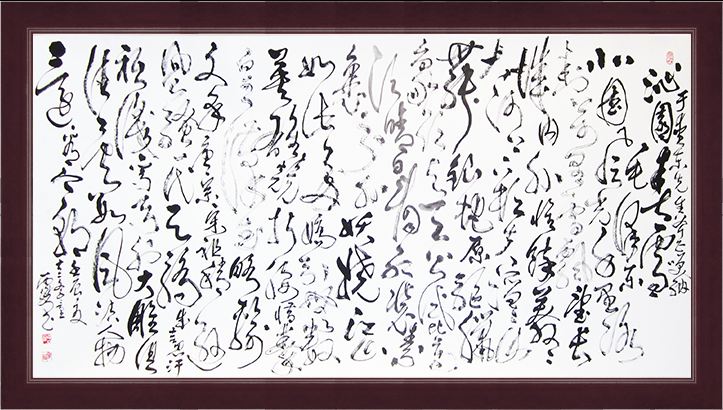 沁园春 雪
毛泽东
北国风光 千里冰
封 万里雪飘 望长
城内外 惟余莽莽
大河上下 顿失滔滔 山
舞银蛇 原驰蜡
象 欲与天公试比高
须晴日 看红装素裹
分外妖娆 江山
如此多娇 引无数
英雄竞折腰 惜秦皇
汉武 略输
文采 唐宗宋祖 稍逊
风骚 一代天骄 成吉思汗
只识弯弓射大雕 俱
往矣 数风流人物
还看今朝
壬辰夏